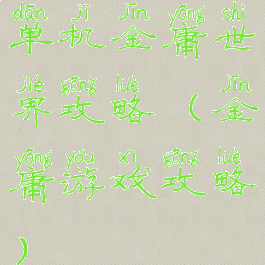 dān jī jīn yōng shì
单机金庸世
jiè gōng lüè jīn
界攻略(金
yōng yóu xì gōng lüè
庸游戏攻略
)